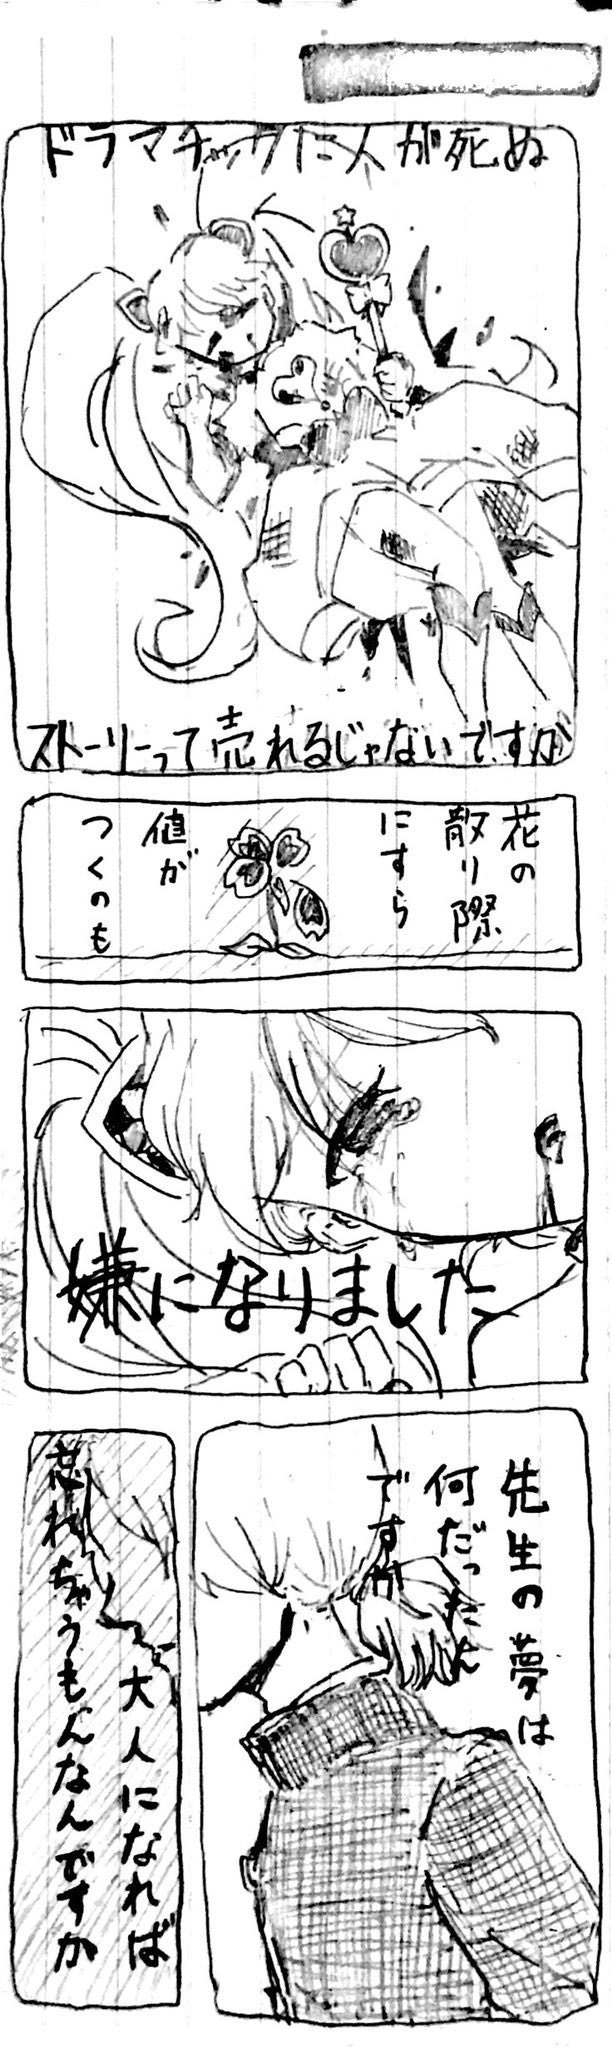 ドラマチックに人が死ぬ
ストーリーって売れるじゃないですか
花の
散り際
にすら
値が
つくのも
嫌になりました
先生の夢は
何だったん
ですか
大人になれば
忘れちゃうもんなんですか